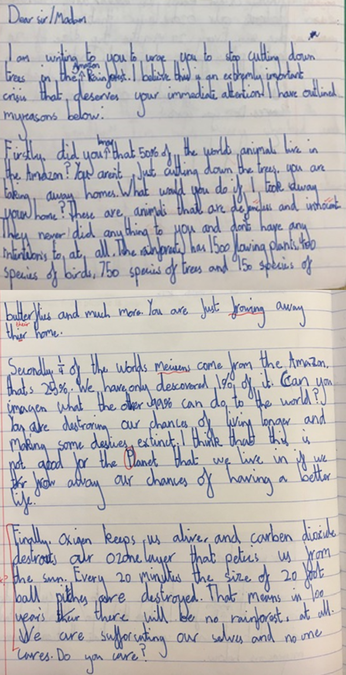 Dear sir/Madam
I am writing to you to urge you to stop cutting down
trees in the Amazon Rainforest. I believe this is an extremly important
crisis that deserves your immediate attention. I have outlined
my reasons below:
Firstly, did you know that 50% of the worlds animals live in
the Amazon? You arent just cutting down the trees, you are
taking away homes. What would you do if I took away
your home? These are animals that are and inocent
They never did anything to you and dont have any
intentions to, at, all. The rainforest has 1500 flowing plants, 400
species of birds, 750 species of trees and 150 species of
butterflies and much more. You are just frowing away
their home.
Secondly, ¼ of the worlds come from the Amazon,
thats 25%. We have only descovered 1% of it. Can you
imagen what the other 99% can do to the world?
You are distroing our chances of living longer and
making some extinct. I think that this is
not good for the Planet that we live in if we
frow away our chances of having a better
life.
Finally, Oxigen keeps us alive and carben dioxide
destroys our ozone layer that us from
the sun. Every 20 minutes the size of 20 foot
ball pitches are destroyed. That means in 100
years there will be no rainforest, at all.
We are sufforcating our selves and no one
cares. Do you care?